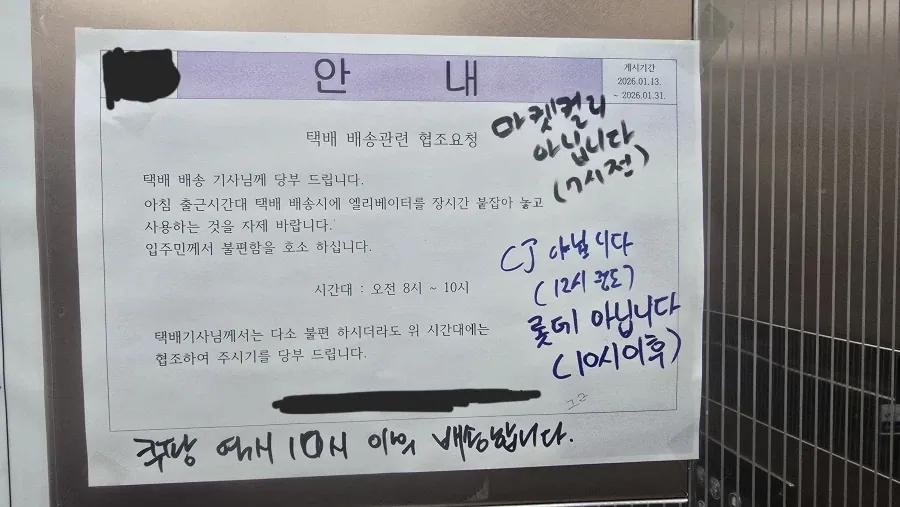 안 내
게시기간
2026.01.13.
~ 2026.01.31.
택배 배송관련 협조요청
택배 배송 기사님께 당부 드립니다.
아침 출근시간대 택배 배송시에 엘리베이터를 장시간 붙잡아 놓고
사용하는 것을 자제 바랍니다.
입주민께서 불편함을 호소 하십니다.
시간대 : 오전 8시 ~ 10시
택배기사님께서는 다소 불편 하시더라도 위 시간대에는
협조하여 주시기를 당부 드립니다.
마켓컬리
아닙니다
(7시전)
CJ 아닙니다
(12시 관도)
롯데 아닙니다
(10시이후)
쿠팡 역시 10시 이외 배송합니다.